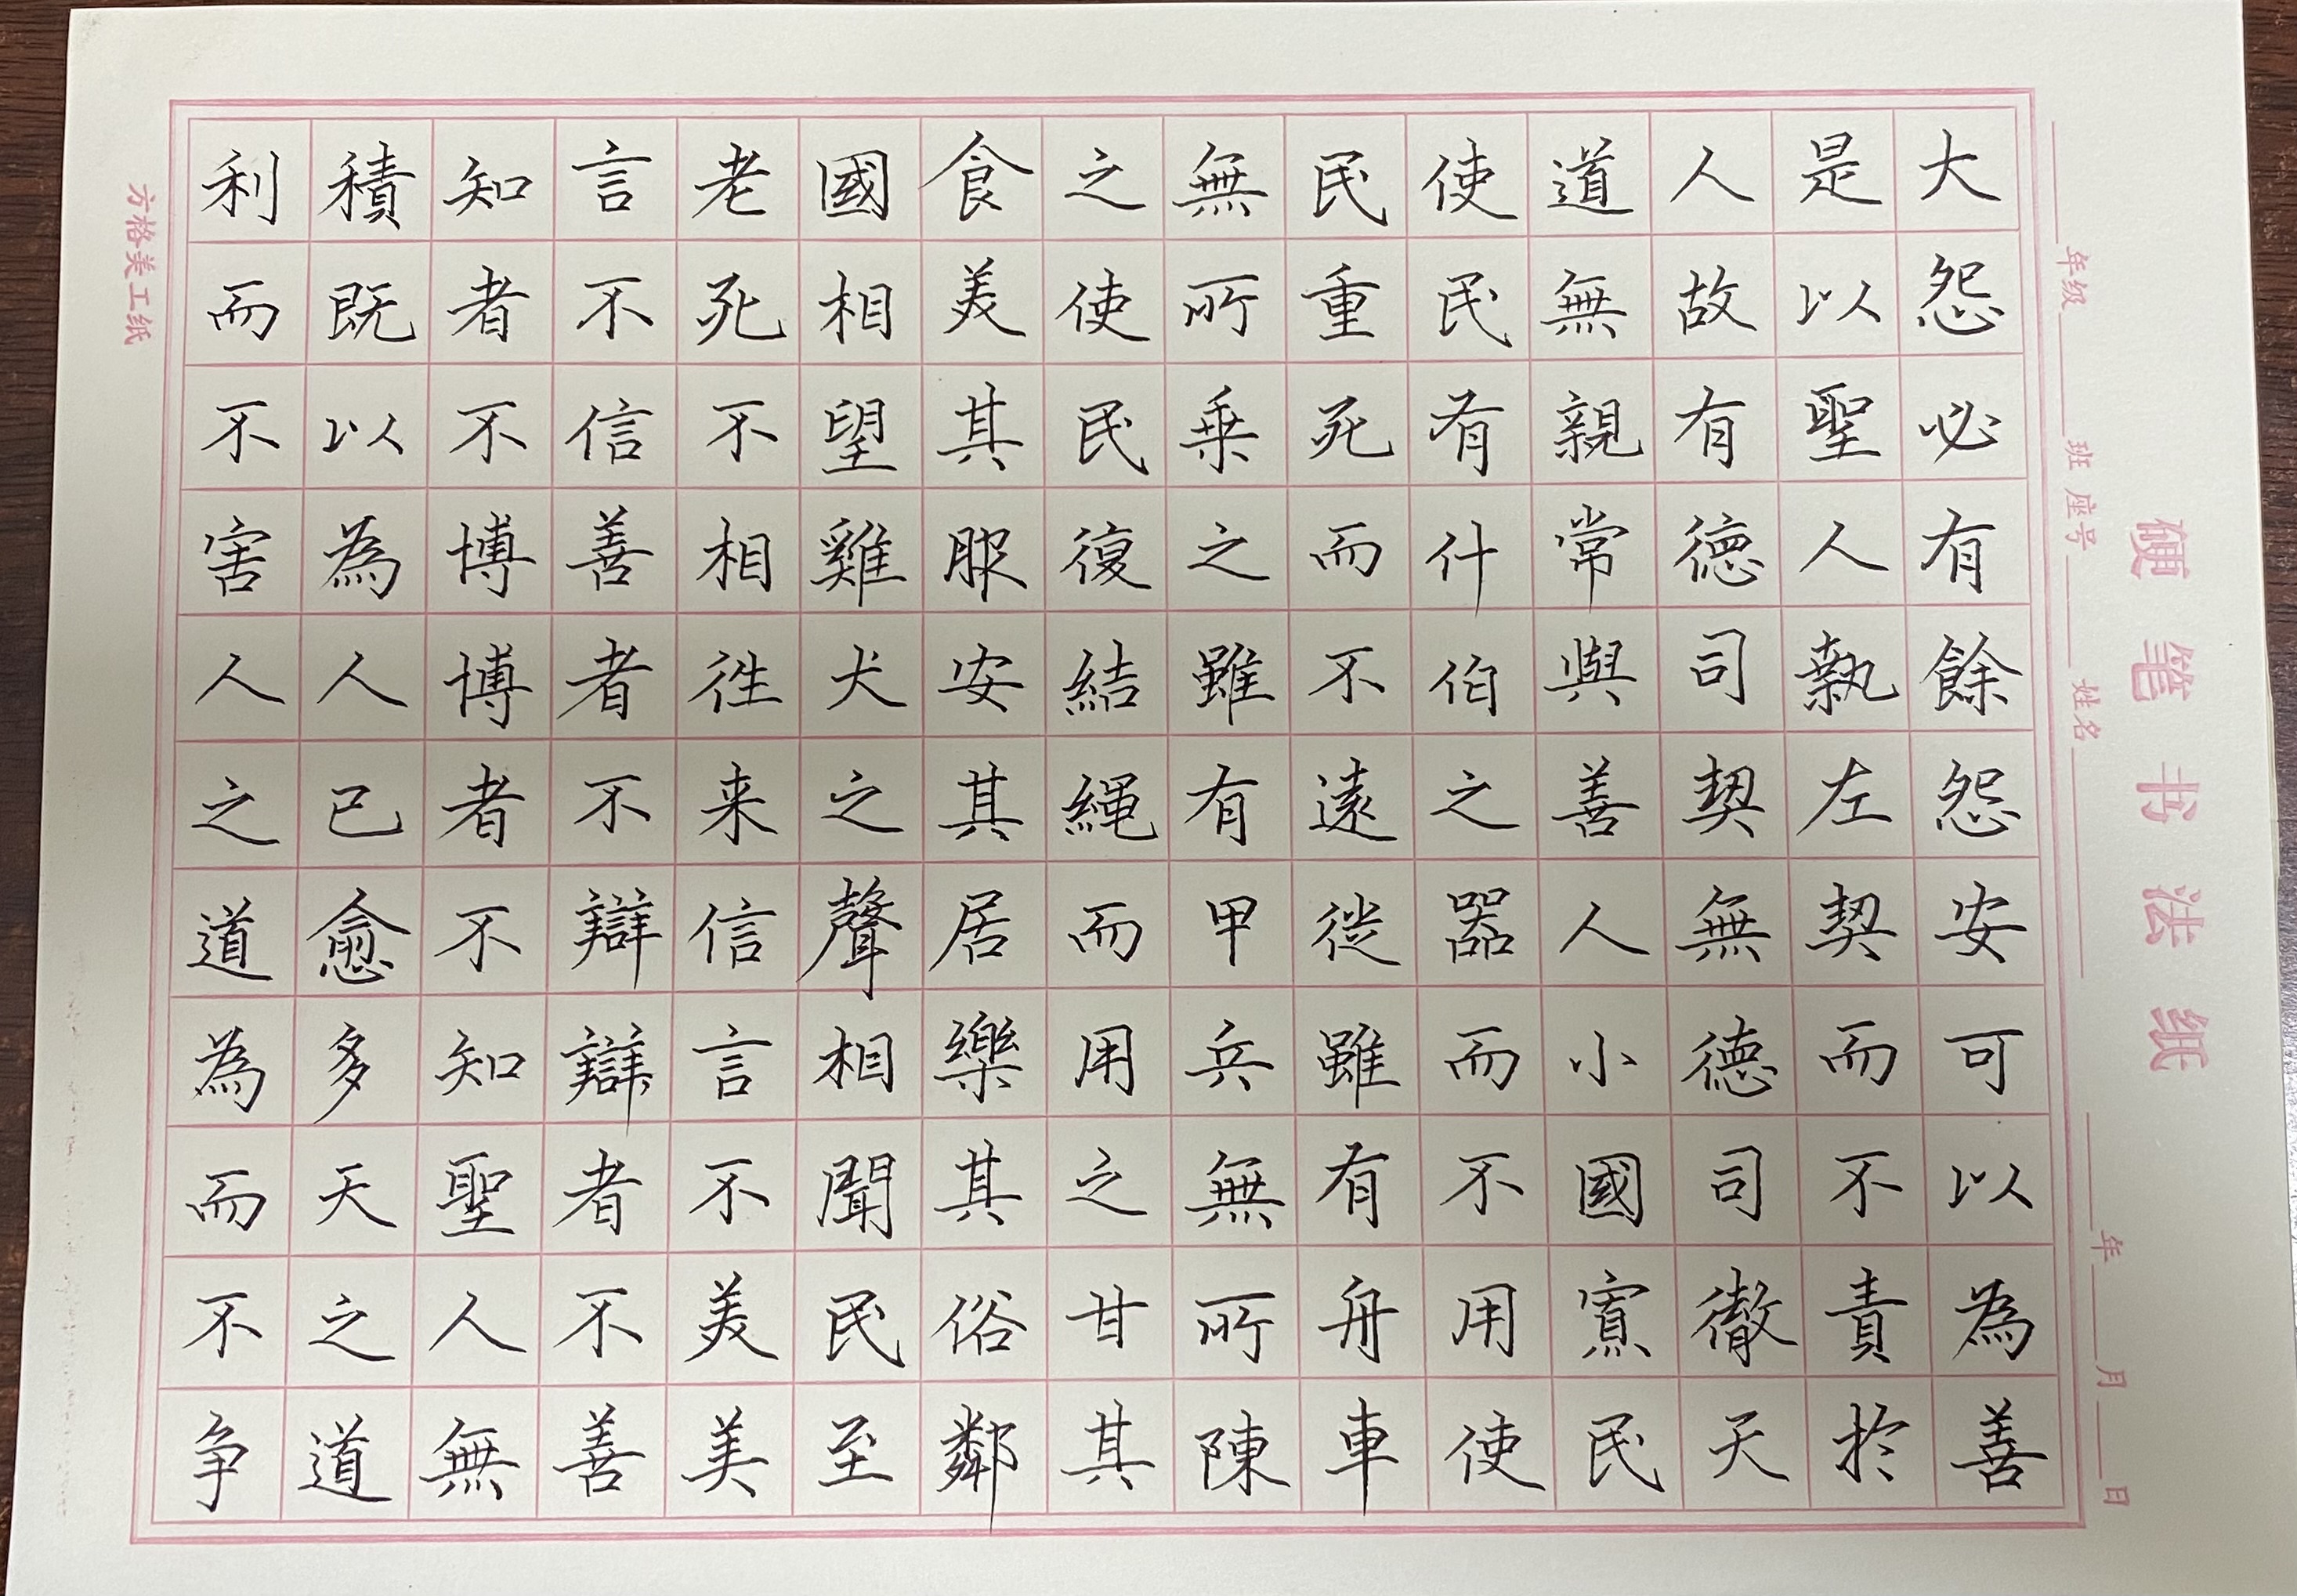 硬笔书法纸
年级 班 座号 姓名 年 月 日
大怨必有餘怨安可以為善
是以聖人執左契而不責於
人故有德司契無德司徹天
道無親常與善人小國寡民
使民有什伯之器而不用使
民重死而不遠徙雖有舟車
無所乗之雖有甲兵無所陳
之使民復結繩而用之甘其
食美其服安其居樂其俗鄰
國相望雞犬之聲相聞民至
老死不相往来信言不美美
言不信善者不辯辯者不善
知者不博博者不知聖人無
積既以為人已愈多天之道
利而不害人之道為而不争
方格美工纸